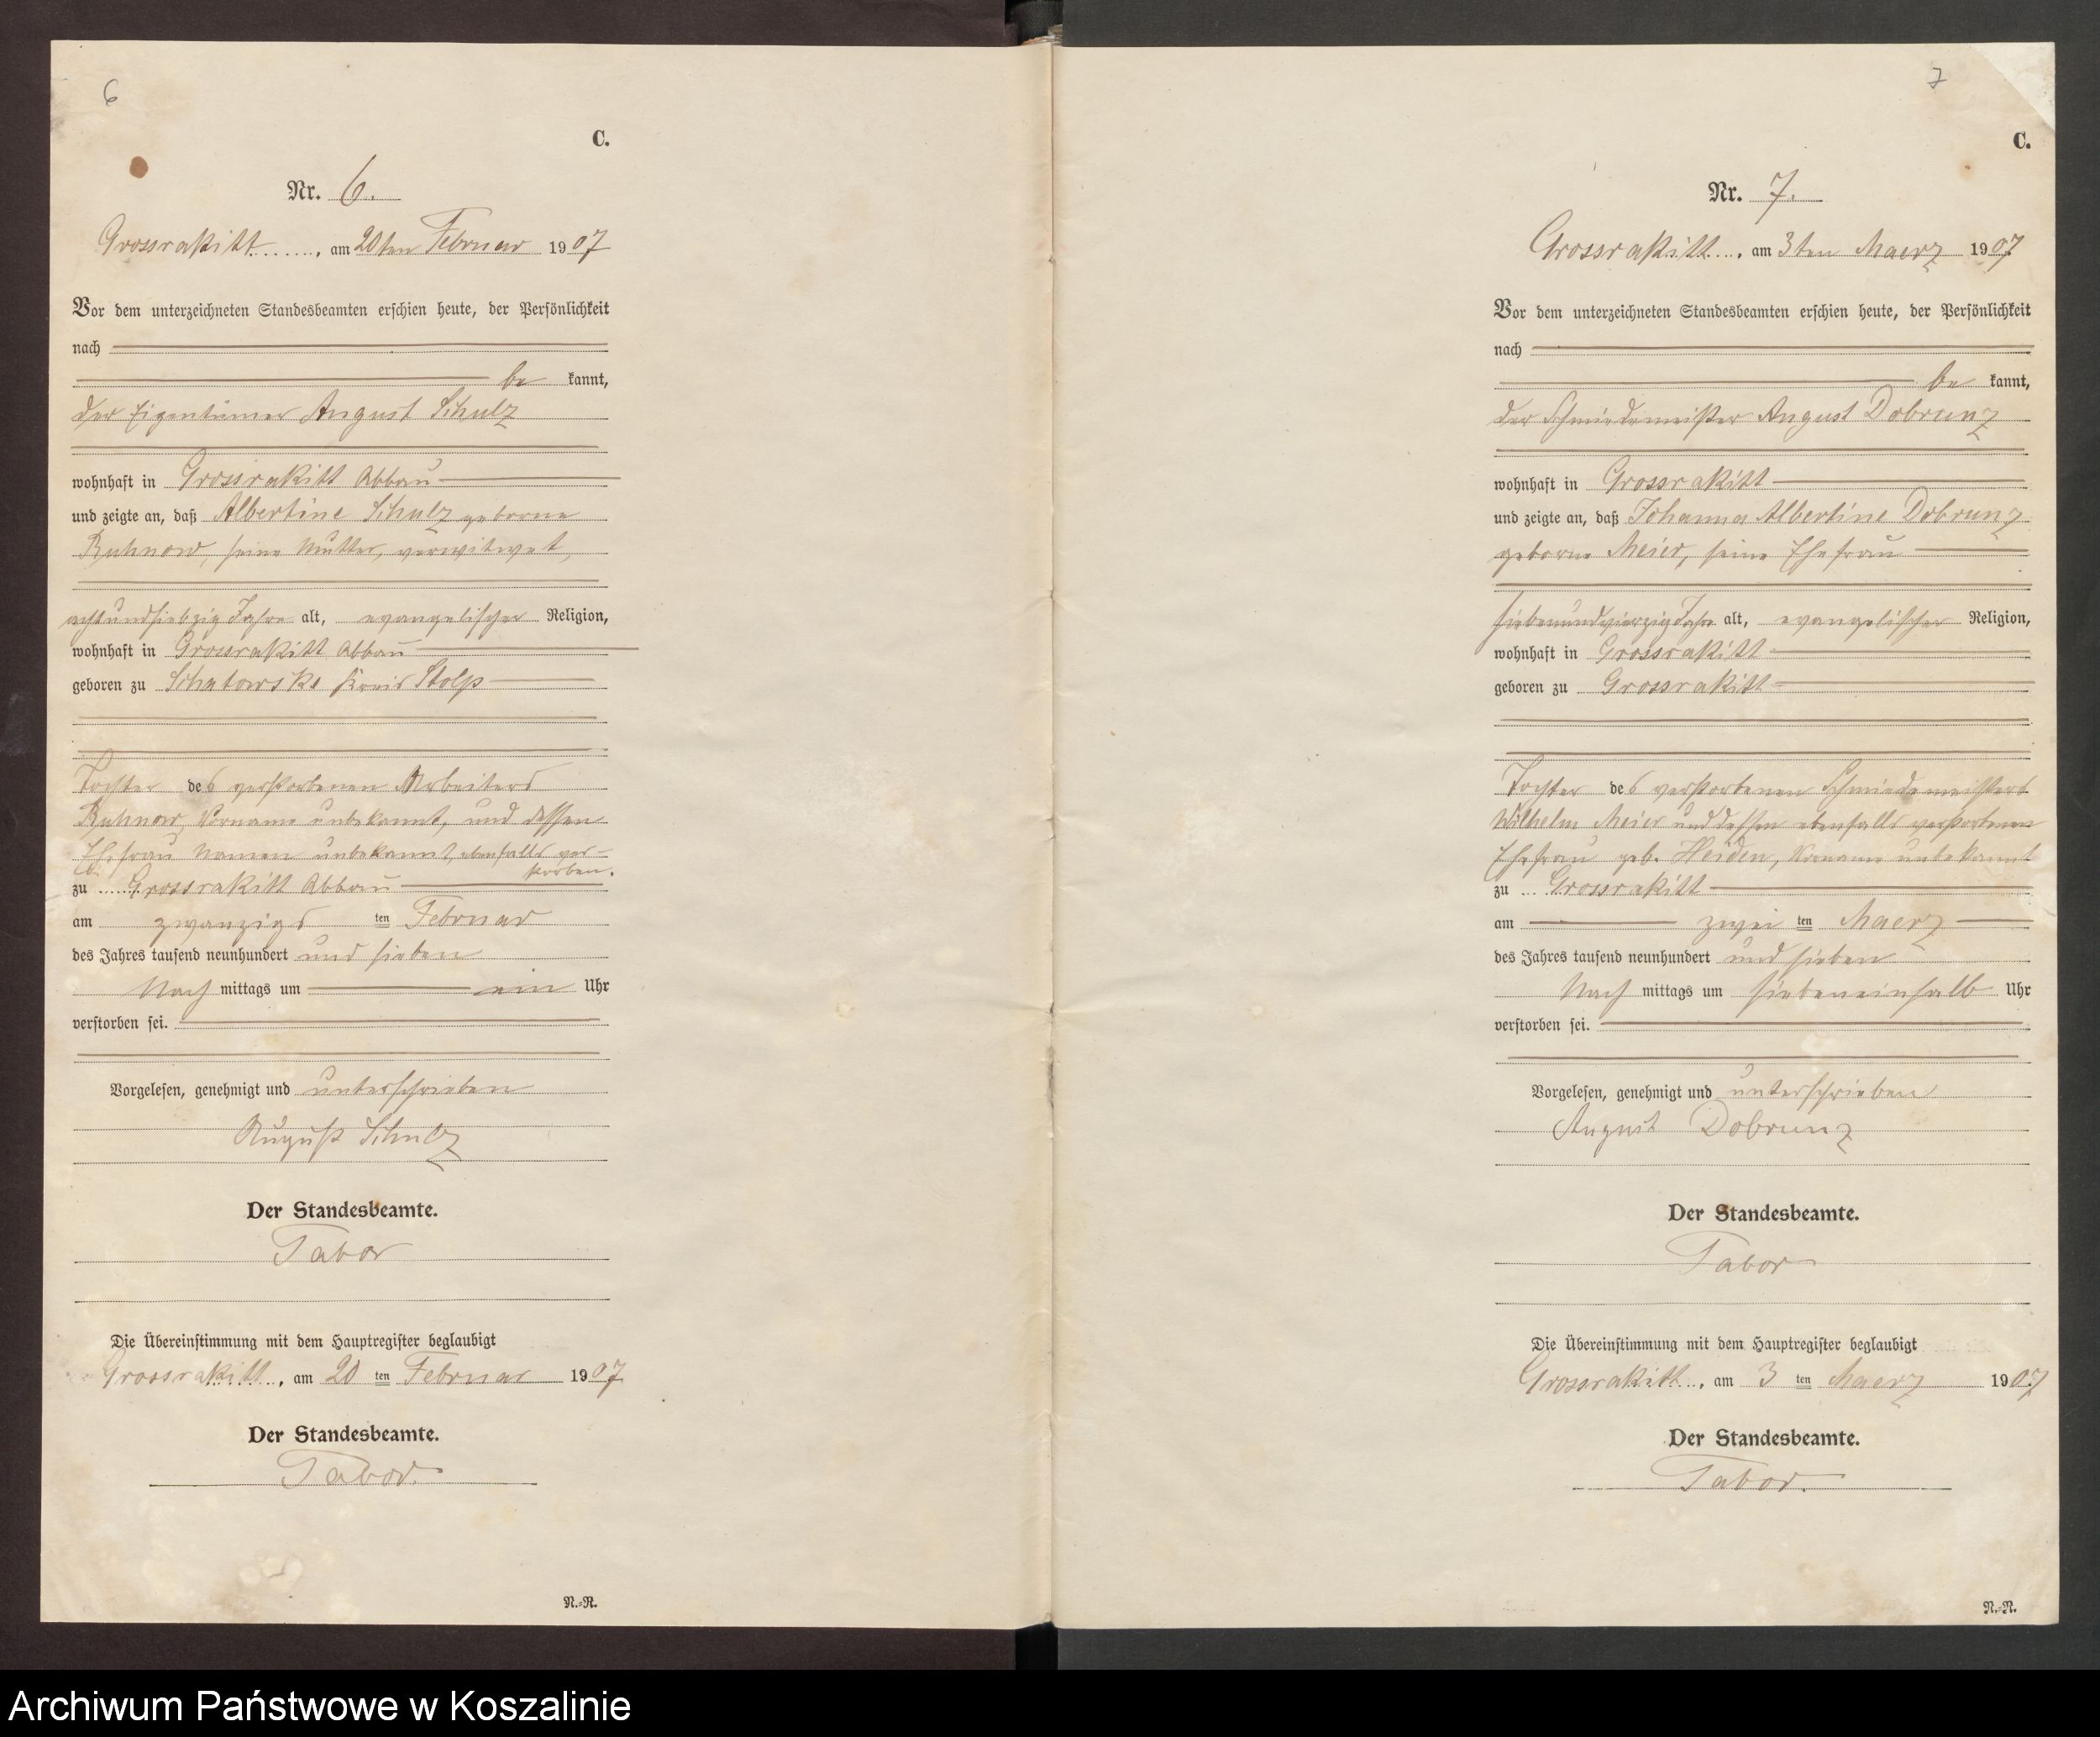 6
C.
Nr. 6.
Grossrakitt, am 20ten Februar 1907
Vor dem unterzeichneten Standesbeamten erschien heute, der Persönlichkeit
nach
be kannt,
der Eigentümer August Schulz
wohnhaft in Grossrakitt Abbau
und zeigte an, daß Albertine Schulz geborne
Ruhnow, seine Mutter, verwitwet,
achtundsiebzig Jahre alt, evangelischer Religion,
wohnhaft in Grossrakitt Abbau
geboren zu Kreis Stolp
Tochter des verstorbenen Arbeiters
Ruhnow, Vorname unbekannt, und dessen
Ehefrau Namen unbekannt, ebenfalls ver-
storben.
zu Grossrakitt Abbau
am zwanzigs ten Februar
des Jahres tausend neunhundert und sieben
Nach mittags um ein Uhr
verstorben sei.
Vorgelesen, genehmigt und unterschrieben
August Schulz
Der Standesbeamte.
Tabor
Die Übereinstimmung mit dem Hauptregister beglaubigt
Grossrakitt, am 20 ten Februar 1907
Der Standesbeamte.
Tabor.
N.-R.
7
C.
Nr. 7.
Grossrakitt, am 3ten Maerz 1907
Vor dem unterzeichneten Standesbeamten erschien heute, der Persönlichkeit
nach
be kannt,
der Schmiedemeister August Dobrunz
wohnhaft in Grossrakitt
und zeigte an, daß Johanna Albertine Dobrunz
geborne Meier, seine Ehefrau
siebenundvierzig Jahre alt, evangelischer Religion,
wohnhaft in Grossrakitt
geboren zu Grossrakitt
Tochter des verstorbenen Schmiedemeisters
Wilhelm Meier und dessen ebenfalls verstorbenen
Ehefrau geb. Heiden, Vorname unbekannt
zu Grossrakitt
am zwei ten Maerz
des Jahres tausend neunhundert und sieben
Nach mittags um siebeneinhalb Uhr
verstorben sei.
Vorgelesen, genehmigt und unterschrieben
August Dobrunz
Der Standesbeamte.
Tabor
Die Übereinstimmung mit dem Hauptregister beglaubigt
Grossrakitt, am 3 ten Maerz 1907
Der Standesbeamte.
Tabor.
N.-R.
Archiwum Państwowe w Koszalinie